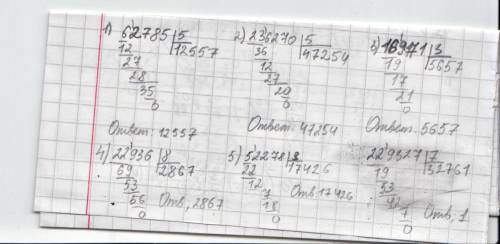 1) 62785 | 5
12 12557
27
28
35
0
Ответ: 12557
2) 236270 | 5
36 47254
12
27
20
0
Ответ: 47254
3) 16971 | 3
19 5657
17
21
0
Ответ: 5657
4) 22936 | 8
69 2867
53
56 Отв, 2867
0
5) 52278 | 3
22 17426
12
7 Отв 17426
18
0
229327 | 7
19 32761
53
42
7 Отв, 1
0